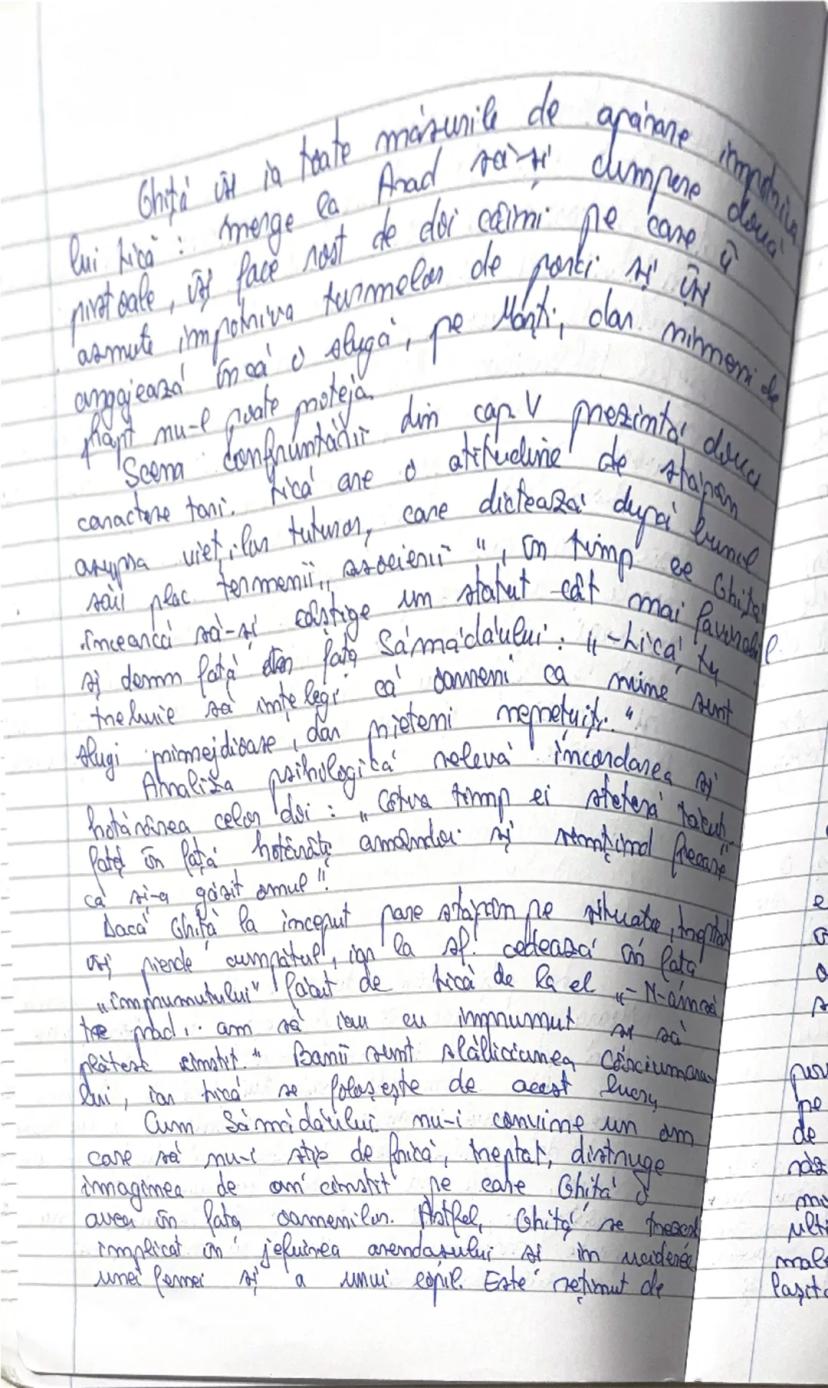 Ghiță își ia toate măsurile de apărare împotriva
lui Lică: merge la Arad să-și cumpere două
pistoale, își face rost de doi câini pe care îi
asmute împotriva turmelor de porci și își
angajează încă o slugă, pe Marți, dar nimeni de
fapt nu-l poate proteja.
Scena confruntării din cap. V prezintă două
caractere tari. Lică are o atitudine de stăpân
asupra vieților tuturor, care dictează după bunul
său plac termenii „ascierii", în timp ce Ghiță
încearcă să-și câștige un statut cât mai favorabil
și demn față din fața Sămădăului: „-Lică, tu
trebuie să înțelegi că oameni ca mine sunt
slugi primejdioase, dar prieteni neprețuiți."
Analiza psihologică relevă încordarea și
hotărârea celor doi: „Câtva timp ei stetera tăcuți
față în față hotărâți amândoi și simțind fiecare
că și-a găsit omul".
Dacă Ghiță la început pare stăpân pe situație, treptat
își pierde cumpătul, iar la sf. cedează în fața
„împrumutului" făcut de Lică de la el „-N-
am să iau cu împrumut și să
plătesc cinstit." Banii sunt slăbiciunea cârciumaru
lui, iar Lică se folosește de acest lucru
Cum Sămădăului nu-i convine un om
care să nu-i știe de frică, treptat, distruge
imaginea de om cinstit pe care Ghiță o
avea în fața oamenilor. Astfel, Ghiță se trezește
implicat în jefuirea arendașului și în uciderea
unei femei și a unui copil. Este reținut de